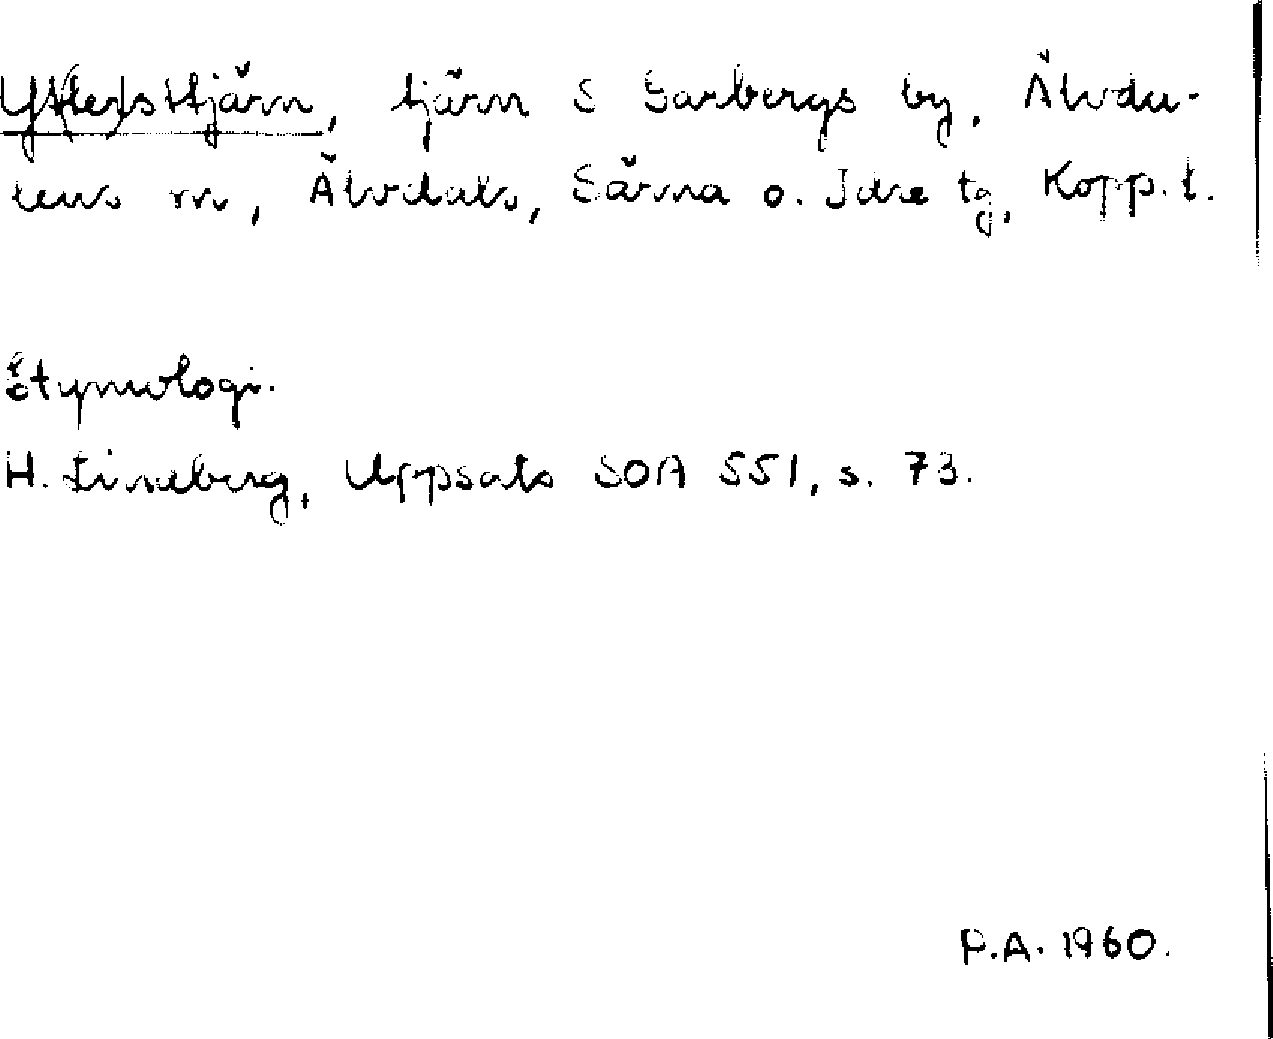 Yt(ter)sttjärn, tjärn S Garbergs by, Älvda-
lens sn, Älvdals, Särna o. Idre tg, Kopp. l.
Etymologi.
H. Lineberg, Uppsats SOA 551, s. 73.
P.A. 1960.